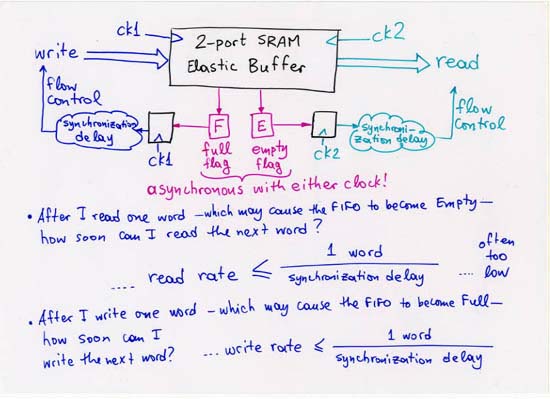 ck1
2-port SRAM
Elastic Buffer
ck2
write
read
flow
control
synchronization
delay
ck1
F
E
full
flag
empty
flag
ck2
synchroni-
zation delay
flow
control
asynchronous with either clock!
• After I read one word – which may cause the FIFO to become Empty –
how soon can I read the next word?
.... read rate ≤ 1 word / synchronization delay .... often too low
• After I write one word – which may cause the FIFO to become Full –
how soon can I
write the next word? ... write rate ≤ 1 word / synchronization delay